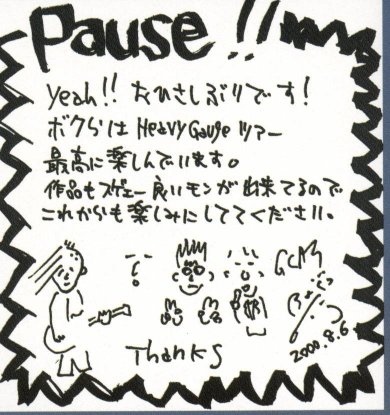 Pause!!
Yeah!! おひさしぶりです!
ボクらは HeavyGauge ツアー
最高に楽しんでいます。
作品もスゲェー良いモンが出来てるので
これからも楽しみにしててください。
GLAY
Thanks
2000.8.6